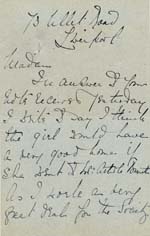 73 Ullet Road
Liverpool
Madam
In answer to your
note received yesterday
I write to say I think
the girl would have
a very good home if
she went to
As I work a very
great deal for the Society